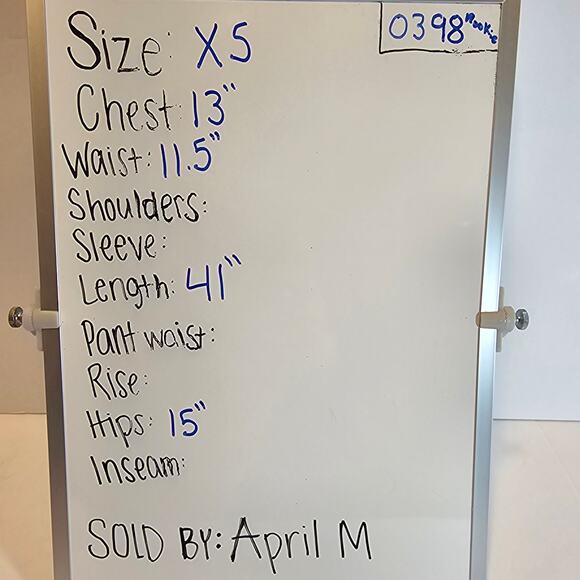 Size: XS
0398 Rookie
Chest: 13"
Waist: 11.5"
Shoulders:
Sleeve:
Length: 41"
Pant waist:
Rise:
Hips: 15"
Inseam:
SOLD BY: April M